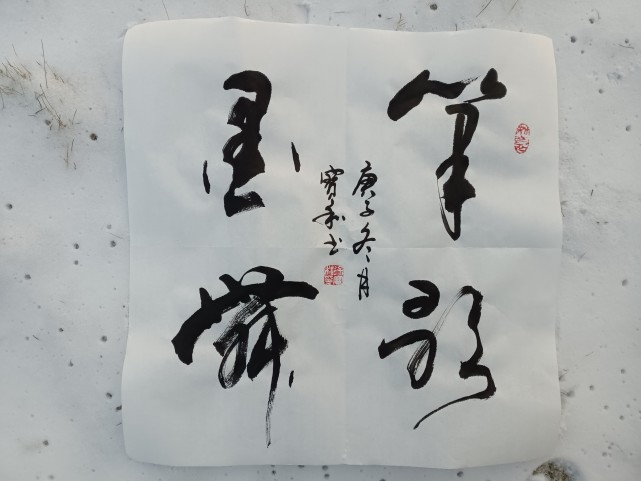 筆歌
墨舞
庚子冬月
书